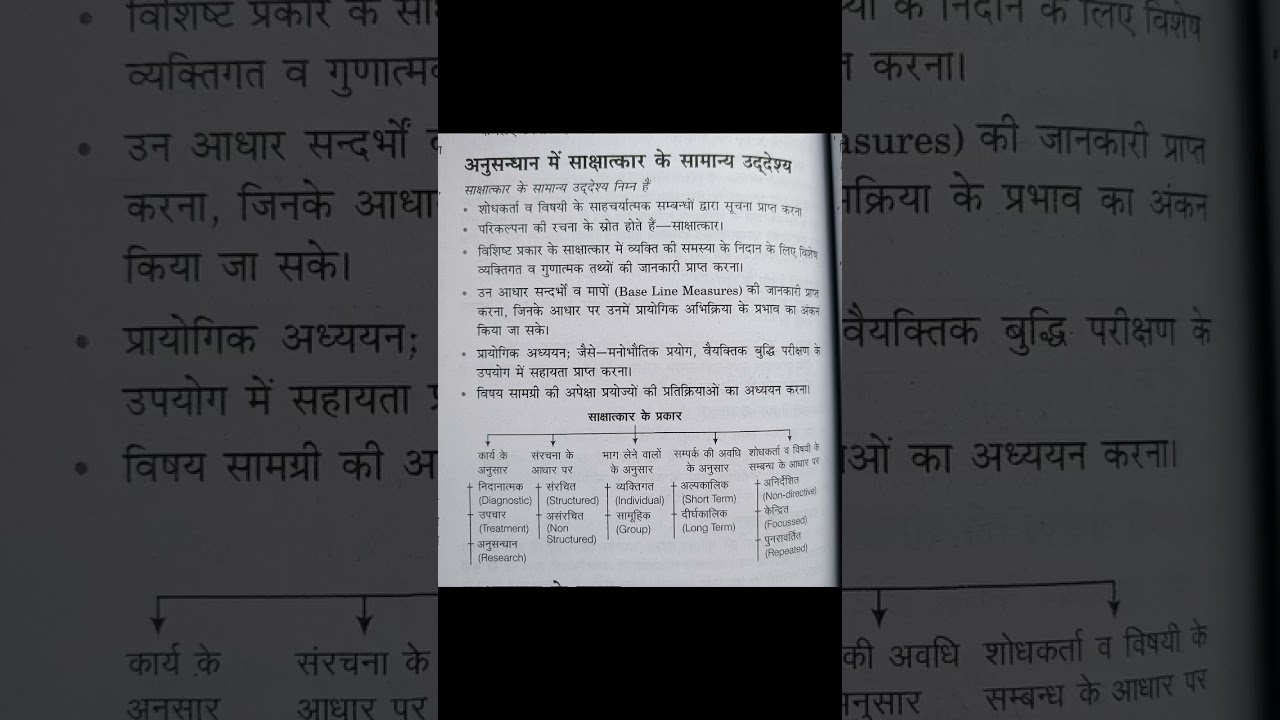 अनुसन्धान में साक्षात्कार के सामान्य उद्‌देश्य
साक्षात्कार के सामान्य उद्‌देश्य निम्न हैं
• शोधकर्ता व विषयी के साहचर्यात्मक सम्बन्धों द्वारा सूचना प्राप्त करना
• परिकल्पना की रचना के स्रोत होते हैं—साक्षात्कार।
• विशिष्ट प्रकार के साक्षात्कार में व्यक्ति की समस्या के निदान के लिए विशेष
व्यक्तिगत व गुणात्मक तथ्यों की जानकारी प्राप्त करना।
• उन आधार सन्दर्भों व मापों (Base Line Measures) की जानकारी प्राप्त
करना, जिनके आधार पर उनमें प्रायोगिक अभिक्रिया के प्रभाव का अंकन
किया जा सके।
• प्रायोगिक अध्ययन; जैसे—मनोभौतिक प्रयोग, वैयक्तिक बुद्धि परीक्षण के
उपयोग में सहायता प्राप्त करना।
• विषय सामग्री की अपेक्षा प्रयोज्यों की प्रतिक्रियाओं का अध्ययन करना।
साक्षात्कार के प्रकार
कार्य के
अनुसार
निदानात्मक
(Diagnostic)
उपचार
(Treatment)
अनुसन्धान
(Research)
संरचना के
आधार पर
संरचित
(Structured)
असंरचित
(Non
Structured)
भाग लेने वालों
के अनुसार
व्यक्तिगत
(Individual)
सामूहिक
(Group)
सम्पर्क की अवधि
के अनुसार
अल्पकालिक
(Short Term)
दीर्घकालिक
(Long Term)
शोधकर्ता व विषयी के
सम्बन्ध के आधार पर
अनिर्देशित
(Non-directive)
केन्द्रित
(Focussed)
पुनरावर्तित
(Repeated)